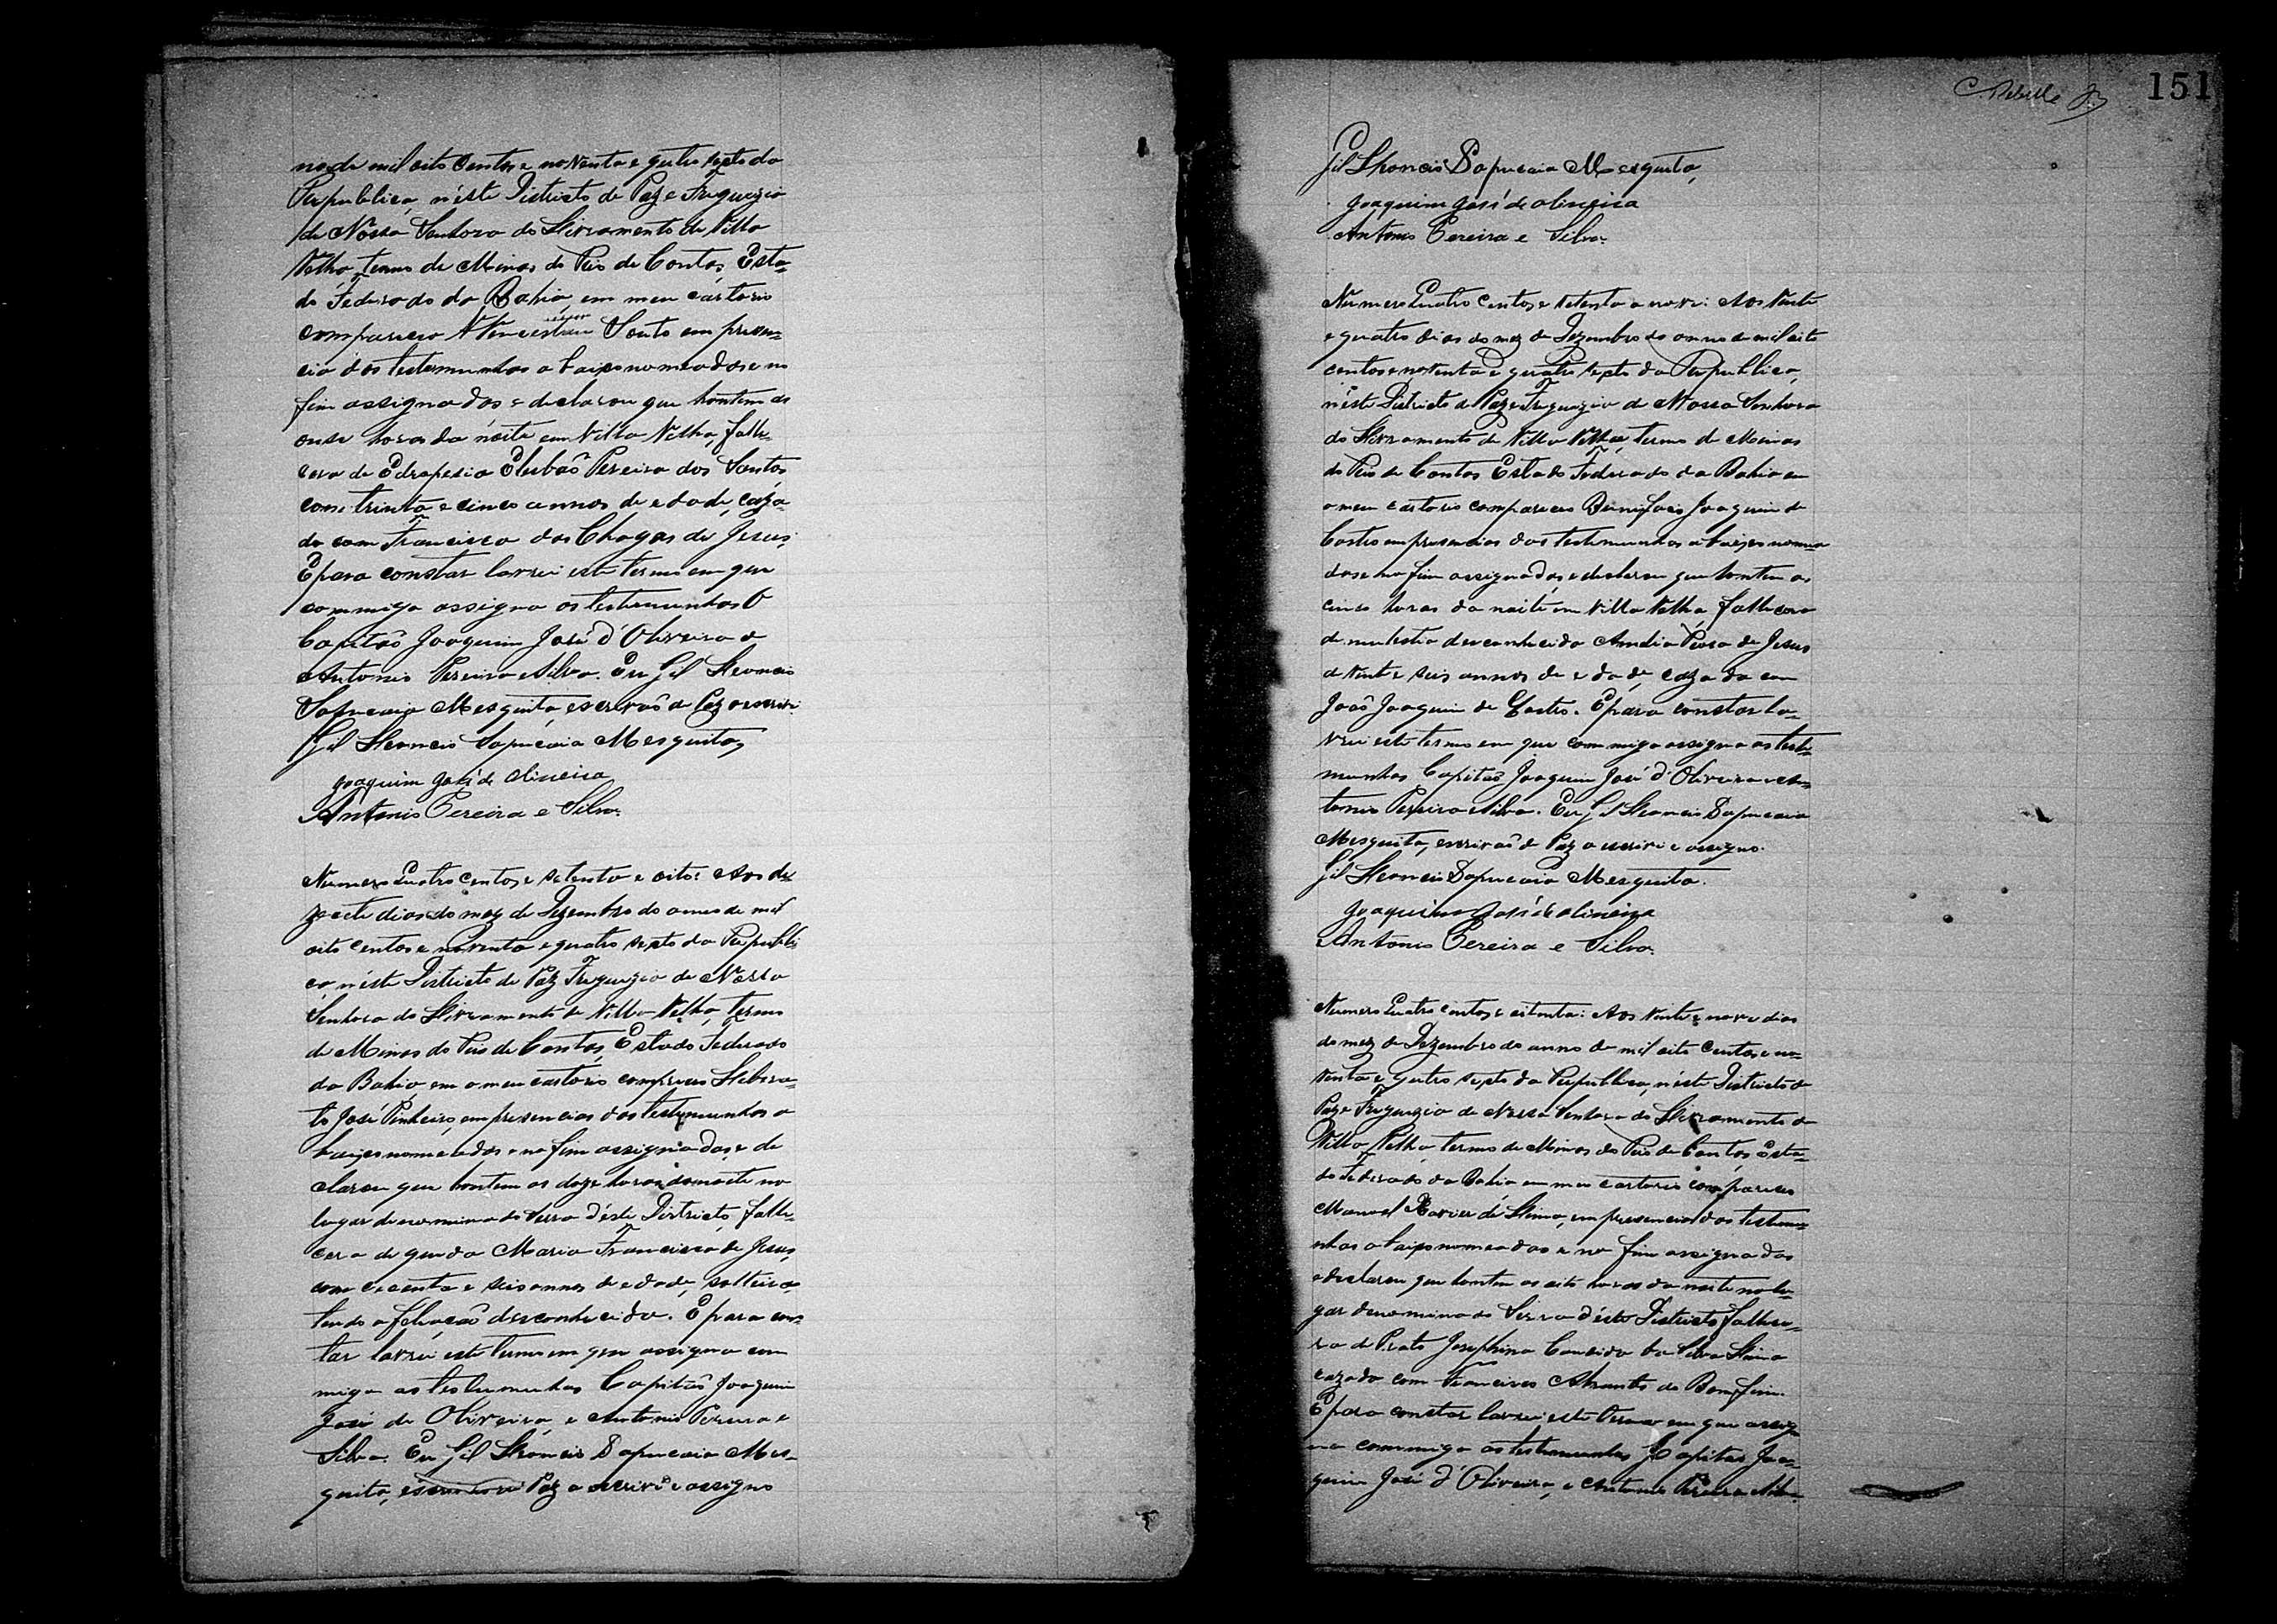 no de mil oito centos e noventa e quatro sexto da
Republica, néste Districto de Paz e Freguezia
de Nóssa Senhora do Livramento de Villa
Velha, termo de Minas do Rio de Contas, Esta-
do Federado da Bahia, em meu cartorio
compareceo Souto em presen-
cia das testemunhas abaixo nomeadas e no
fim assignadas e declarou que hontem as
onse horas da noite em Villa Velha, falle-
cera de Edropesia Pereira dos Santos
com trinta e cinco annos de edade, caza-
do com Francisca das Chagas de Jesus.
E para constar lavrei este termo em que
commigo assigna as testemunhas O
Capitaõ Joaquim José d'Oliveira e
Antonio Pereira e Silva. Eu Gil Leoncio
Sapucaia Mesquita, escrivaõ de Paz o escrivi.
Gil Leoncio Sapucaia Mesquita,
Joaquim José de Oliveira
Antonio Pereira e Silva.
Numero Quatro centos e setenta e oito: Aos de-
zecete dias do mez de Dezembro do anno de mil
oito centos e noventa e quatro sexto da Republi-
ca, néste Districto de Paz Freguezia de Nossa
Senhora do Livramento de Villa Velha, termo
de Minas do Rio de Contas, Estado Federado
da Bahia, em o meu cartorio compareceo Libera-
to José Pinheiro, em presencias das testemunhas a
baixo nomeadas e no fim assignadas, e de
clarou que hontem as doze horas da noite no
lugar denominado Serra d'éste Districto, falle-
cera de queda Maria Francisca de Jesus,
com cecenta e seis annos de edade, solteira,
tendo a feliacaõ desconhecida. E para cons-
tar lavrei este termo em que assigna com
migo as testemunhas Capitaõ Joaquim
José de Oliveira, e Antonio Pereira e
Silva. Eu Gil Leoncio Sapucaia Mes-
quita, escrivaõ de Paz o escrivi e assigno
151
Gil Leoncio Sapucaia Mesquita,
Joaquim José de Oliveira
Antonio Pereira e Silva.
Numero Quatro centos e setenta e nove: Aos vinte
e quatro dias do mez de Dezembro do anno de mil oito
centos e noventa e quatro sexto da Republica,
néste Districto de Paz e Freguezia de Nossa Senhora
do Livramento de Villa Velha, termo de Minas
do Rio de Contas Estado Federado da Bahia em
o meu cartorio compareceo Bonifacio Joaquim de
Castro em presencias das testemunhas abaixo nomea
das e no fim assignadas, e declarou que hontem as
cinco horas da noite em Villa Velha fallecera
de mulestia desconhecida Amelia Rosa de Jesus
de vinte e seis annos de edade, cazada com
Joaõ Joaquim de Castro. E para constar la-
vrei este termo em que commigo assigna as teste-
munhas Capitaõ Joaquim José d'Oliveira e An-
tonio Pereira e Silva. Eu Gil Leoncio Sapucaia
Mesquita, escrivaõ de Paz o escrivi e assigno.
Gil Leoncio Sapucaia Mesquita.
Joaquim José de Oliveira
Antonio Pereira e Silva.
Numero Quatro centos e oitenta: Aos vinte e nove dias
do mez de Dezembro do anno de mil oito centos e no-
venta e quatro sexto da Republica, néste Districto de
Paz e Freguezia de Nossa Senhora do Livramento de
Villa Velha, termo de Minas do Rio de Contas, Esta-
do Federado da Bahia em meu cartorio compareceo
Manoel Xavier de Lima, em presencia das testemu-
nhas abaixo nomeadas e no fim assignadas
e declarou que hontem as oito horas da noite no lu-
gar denominado Serra d'éste Districto, fallece-
ra de Parto Josephina Candida da Silva Lima
cazada com Francisco do Bomfim.
E para constar lavrei este termo em que assig
na commigo as testemunhas Capitaõ Joa-
quim José d'Oliveira, e Antonio Pereira e Silva.